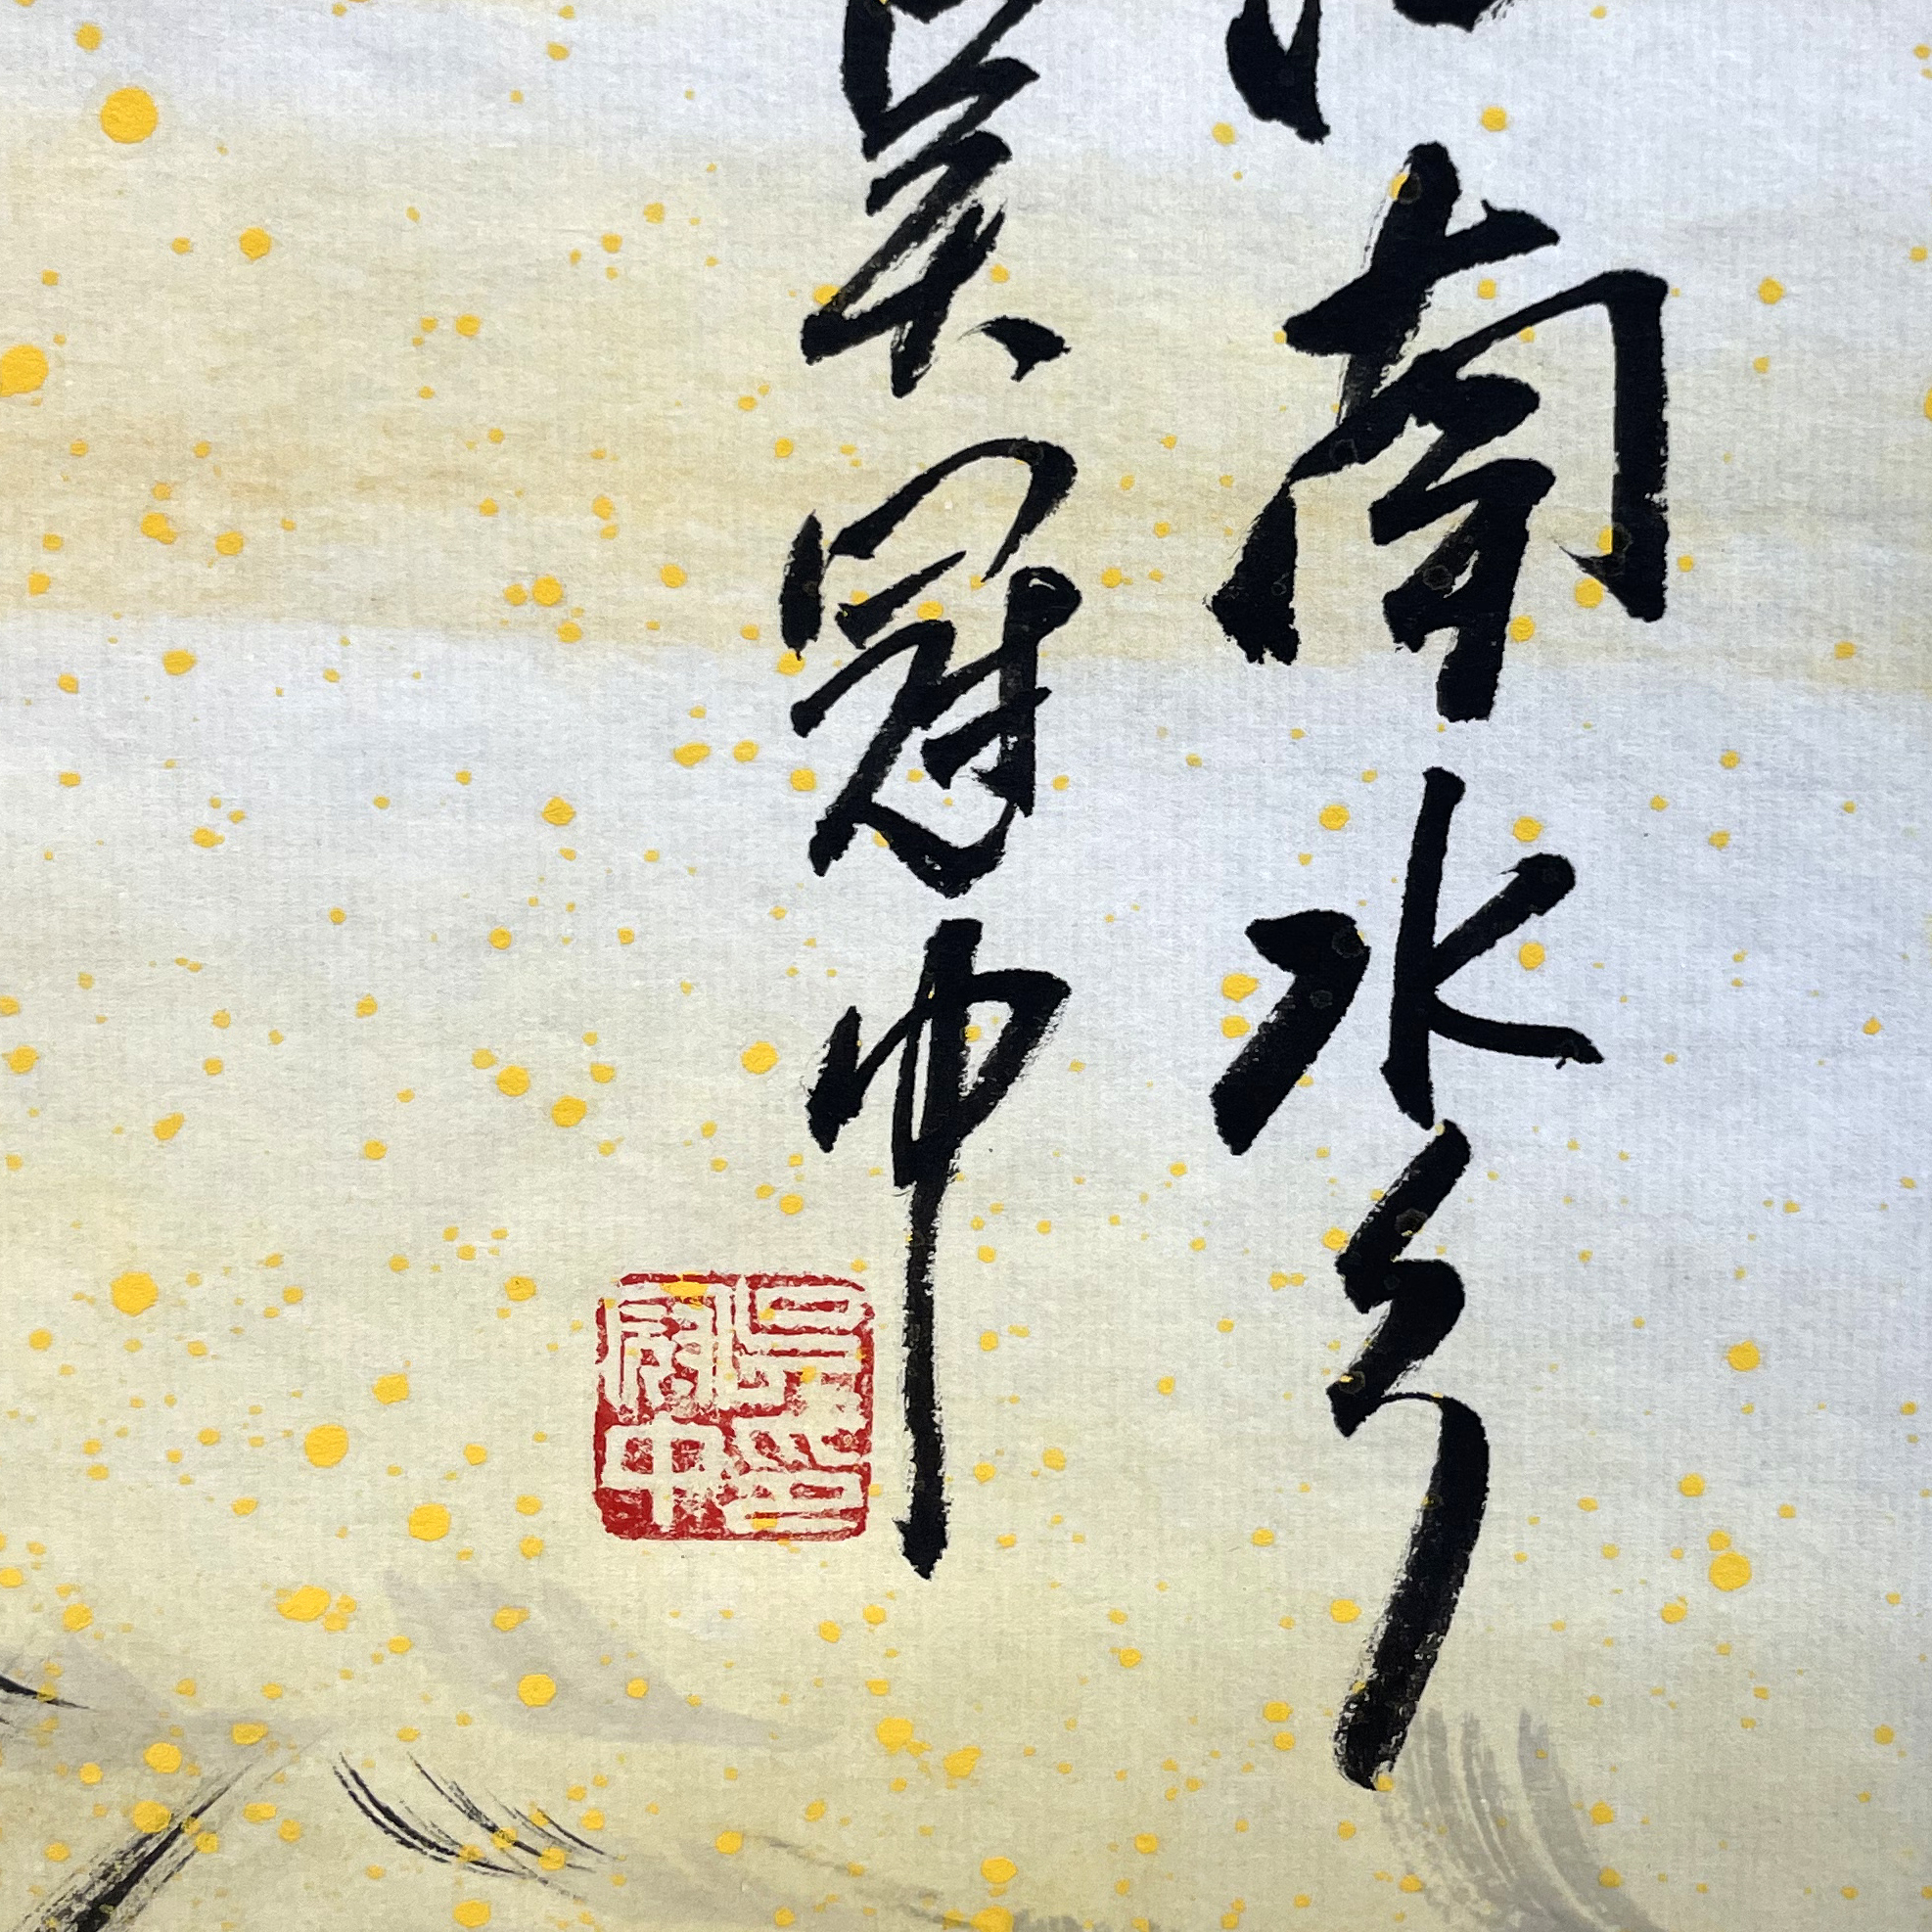 南水乡
吴冠中
吴冠中印